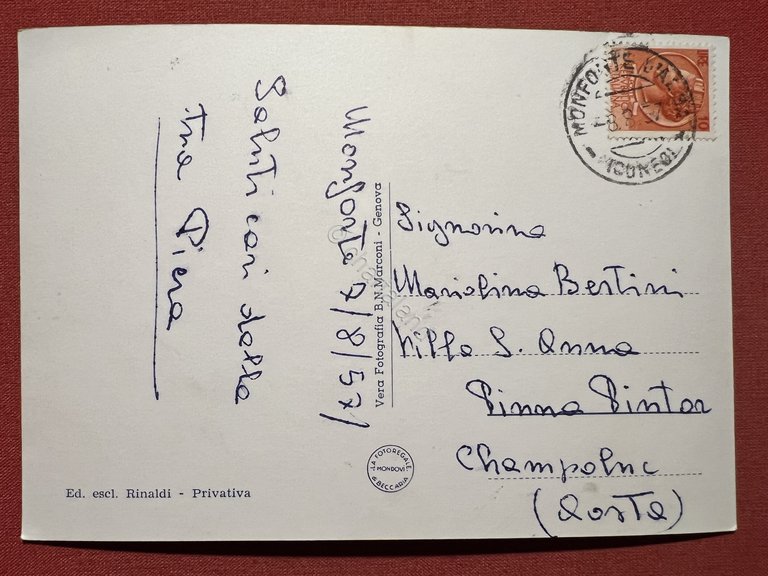 Monforte 7/8/57/
Saluti cari dalla
tua Piera
Vera Fotografia B.N.Marconi - Genova
MONFORTE D'ALBA
10
Signorina
Mariolina Bertini
Villa S. Anna
Pinna Pintor
Champoluc
(Aosta)
LA FOTOREGALE
MONDOVI
& BECCARIA
Ed. escl. Rinaldi - Privativa